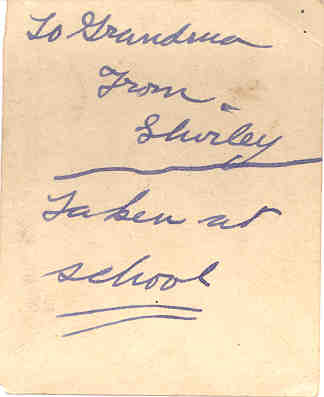 To Grandma
From -
Shirley
Taken at
school